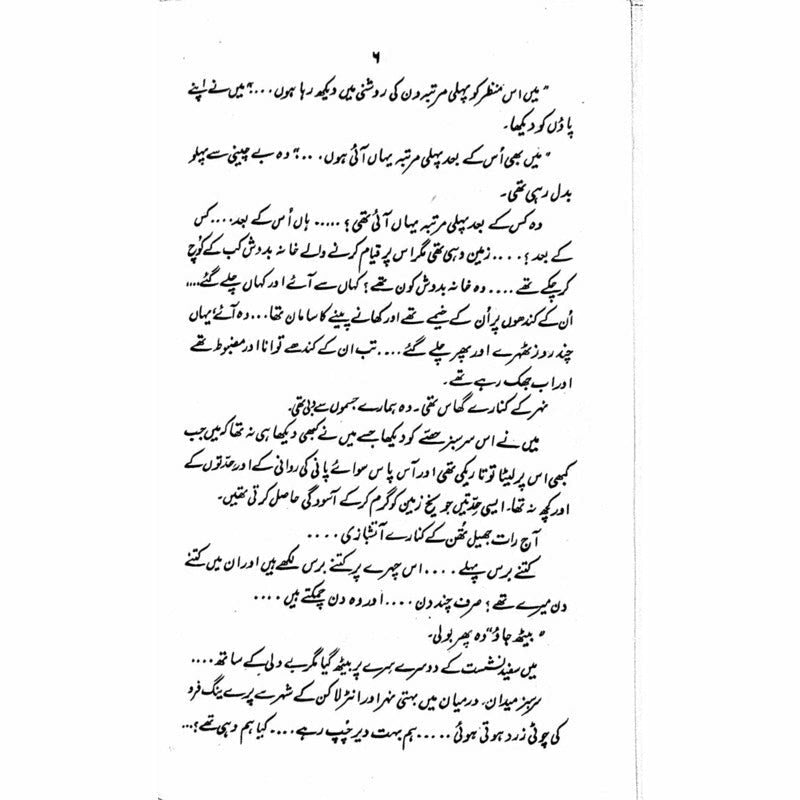 ۶
" میں اس منظر کو پہلی مرتبہ دن کی روشنی میں دیکھ رہا ہوں...." میں نے اپنے
پاؤں کو دیکھا۔
" میں بھی اُس کے بعد پہلی مرتبہ یہاں آئی ہوں...." وہ بے چینی سے پہلو
بدل رہی تھی۔
وہ کس کے بعد پہلی مرتبہ یہاں آئی تھی؟ ..... ہاں اُس کے بعد.... کس
کے بعد؟ .... زمین وہی تھی مگر اس پر قیام کرنے والے خانہ بدوش کب کے کُوچ
کر چکے تھے .... وہ خانہ بدوش کون تھے؟ کہاں سے آئے اور کہاں چلے گئے....
اُن کے کندھوں پر اُن کے خیمے تھے اور کھانے پینے کا سامان تھا... وہ آئے، یہاں
چند روز ٹھہرے اور پھر چلے گئے .... تب ان کے کندھے توانا اور مضبوط تھے
اور اب جھک رہے تھے۔
نہر کے کنارے گھاس تھی۔ وہ ہمارے جسموں سے دبی تھی۔
میں نے اس سرسبز حصّے کو دیکھا جسے میں نے کبھی دیکھا ہی نہ تھا کہ میں جب
کبھی اس پر لیٹا تو تاریکی تھی اور آس پاس سوائے پانی کی روانی کے اور حدّتوں کے
اور کچھ نہ تھا۔ ایسی حدّتیں جو یخ زمین کو گرم کر کے آسودگی حاصل کرتی تھیں۔
آج رات جھیل تُھن کے کنارے آتشبازی ....
کتنے برس پہلے .... اس چہرے پر کتنے برس لکھے ہیں اور ان میں کتنے
دن میرے تھے؟ صرف چند دن .... اور وہ دن چمکتے ہیں ....
" بیٹھ جاؤ" وہ پھر بولی۔
میں سفید نشست کے دوسرے سِرے پر بیٹھ گیا مگر بے دلی کے ساتھ ....
سرسبز میدان۔ درمیان میں بہتی نہر اور انٹرلاکن کے شہر سے پرے ینگ فرو
کی چوٹی زرد ہوتی ہوئی ..... ہم بہت دیر چُپ رہے .... کیا ہم وہی تھے؟...